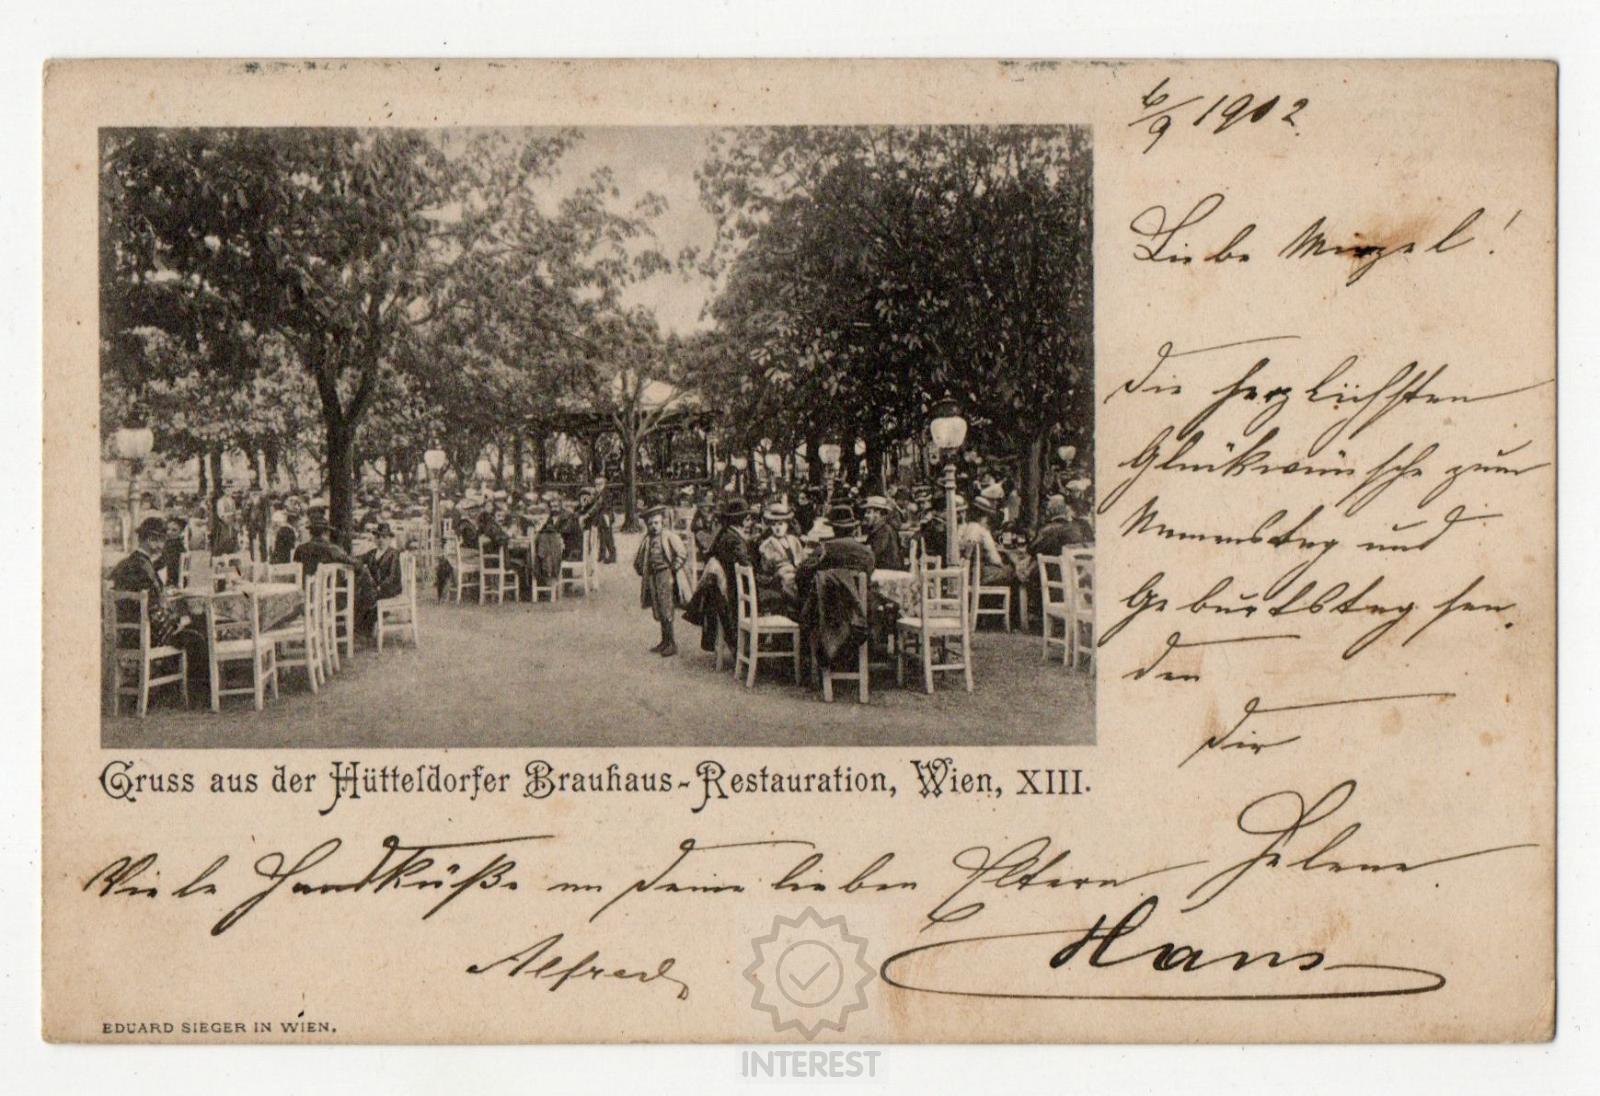 6/9 1902.
Liebe Mizzl!
Die herzlichsten
Glückwünsche zum
Namenstag und
Geburtstag sen.
den
Dir
Helene.
Gruss aus der Hütteldorfer Brauhaus-Restauration, Wien, XIII.
Viele Handküße an Deine lieben Eltern
Alfred
Hans
EDUARD SIEGER IN WIEN.
INTEREST